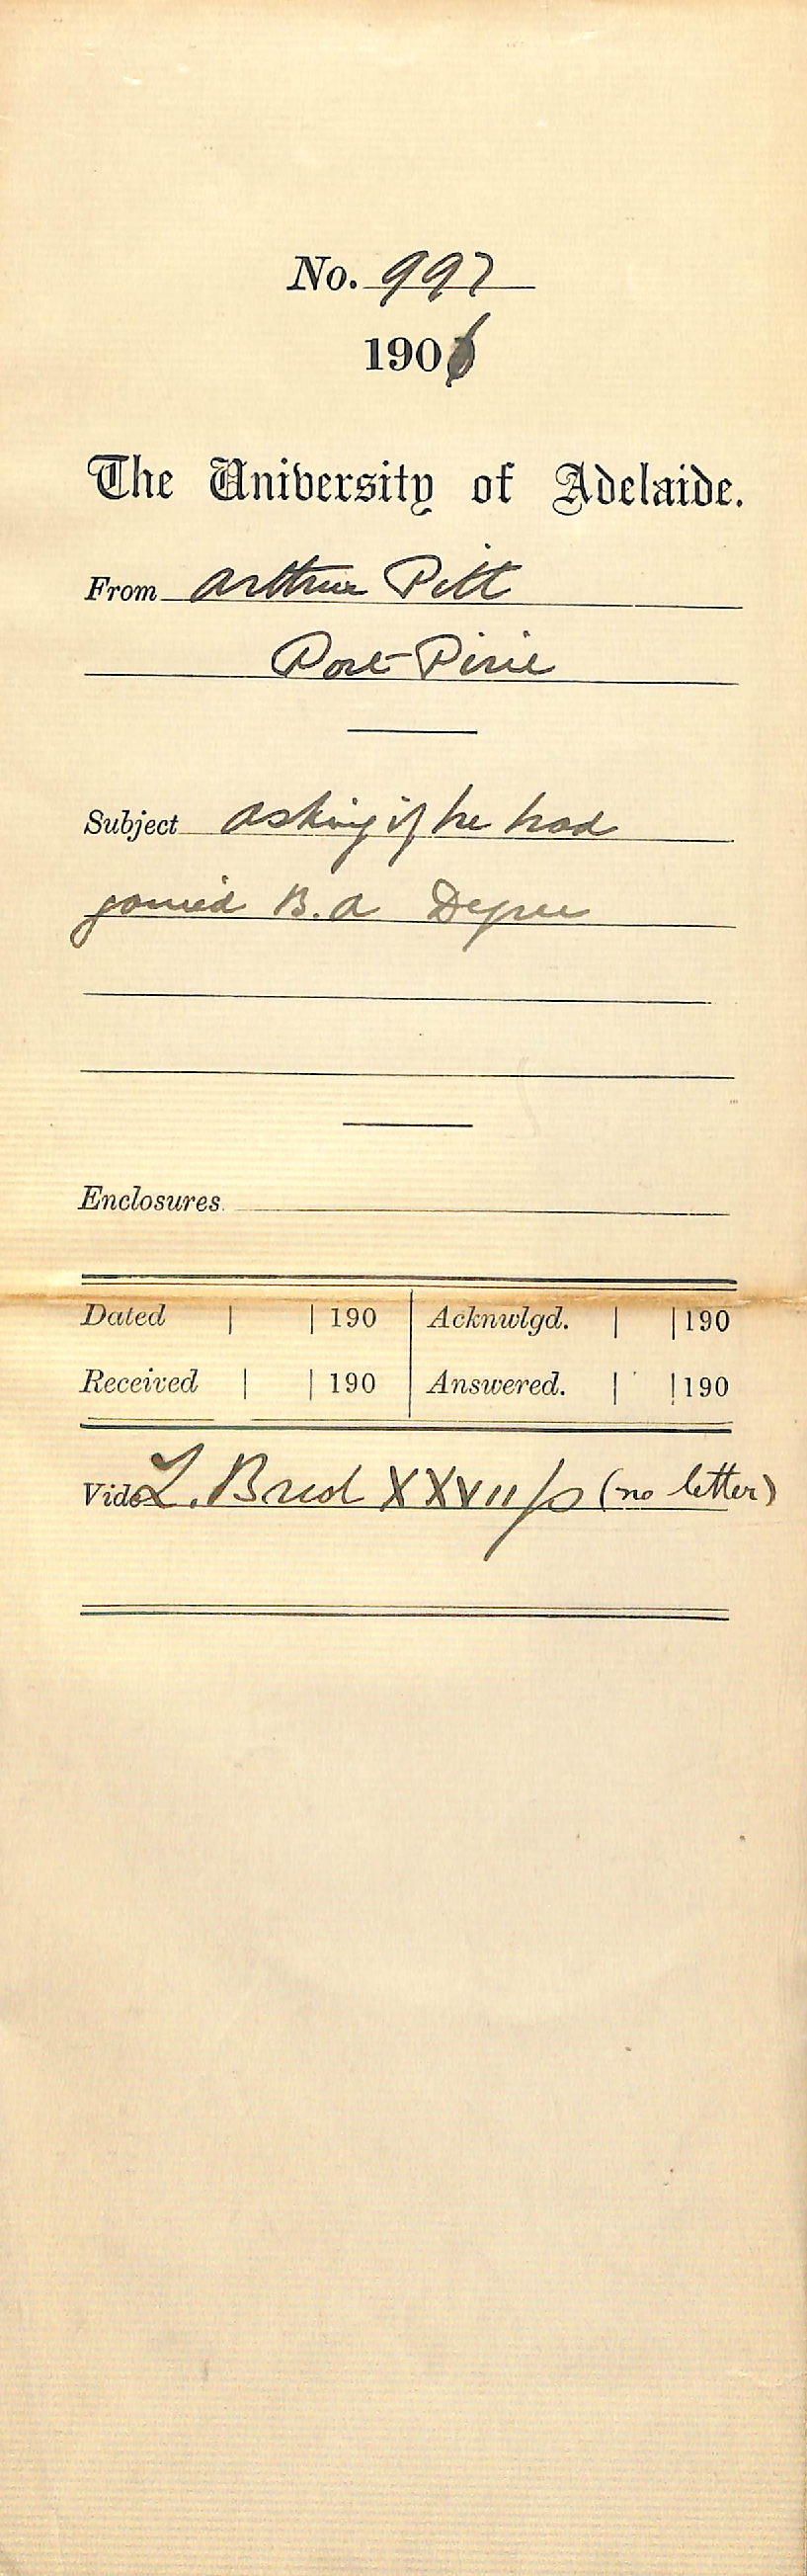 No. 997
1906
The University of Adelaide.
From Arthur Pitt
Port Pirie
Subject asking if he had
gained B.A Degree
Enclosures
Dated | | 190 | Acknwlgd. | | 190
Received | | 190 | Answered. | | 190
Vide L. Book XXVII/0 (no letter)